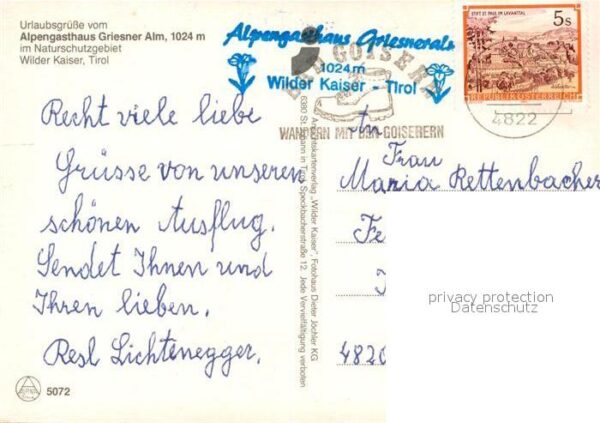 Urlaubsgrüße vom
Alpengasthaus Griesner Alm, 1024 m
im Naturschutzgebiet
Wilder Kaiser, Tirol
Alpengasthaus Griesneralm
1024m
Wilder Kaiser - Tirol
GOISERN
WANDERN MIT DEN GOISERERN
STIFT ST. PAUL IM LAVANTTAL
5s
REPUBLIK ÖSTERREICH
4822
Recht viele liebe
Grüsse von unseren
schönen Ausflug.
Sendet Ihnen und
Ihren lieben.
Resl Lichtenegger.
Ansichtskartenverlag „Wilder Kaiser", Fotohaus Dieter Jöchler KG
6380 St. Johann in Tirol, Speckbacherstraße 12. Jede Vervielfältigung verboten
An
Frau
Maria Rettenbacher
Fe
4820
privacy protection
Datenschutz
5072